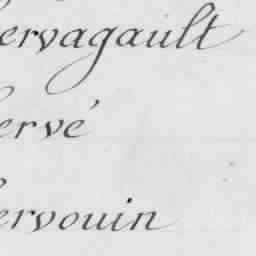 ervagault
ervé
ervouin